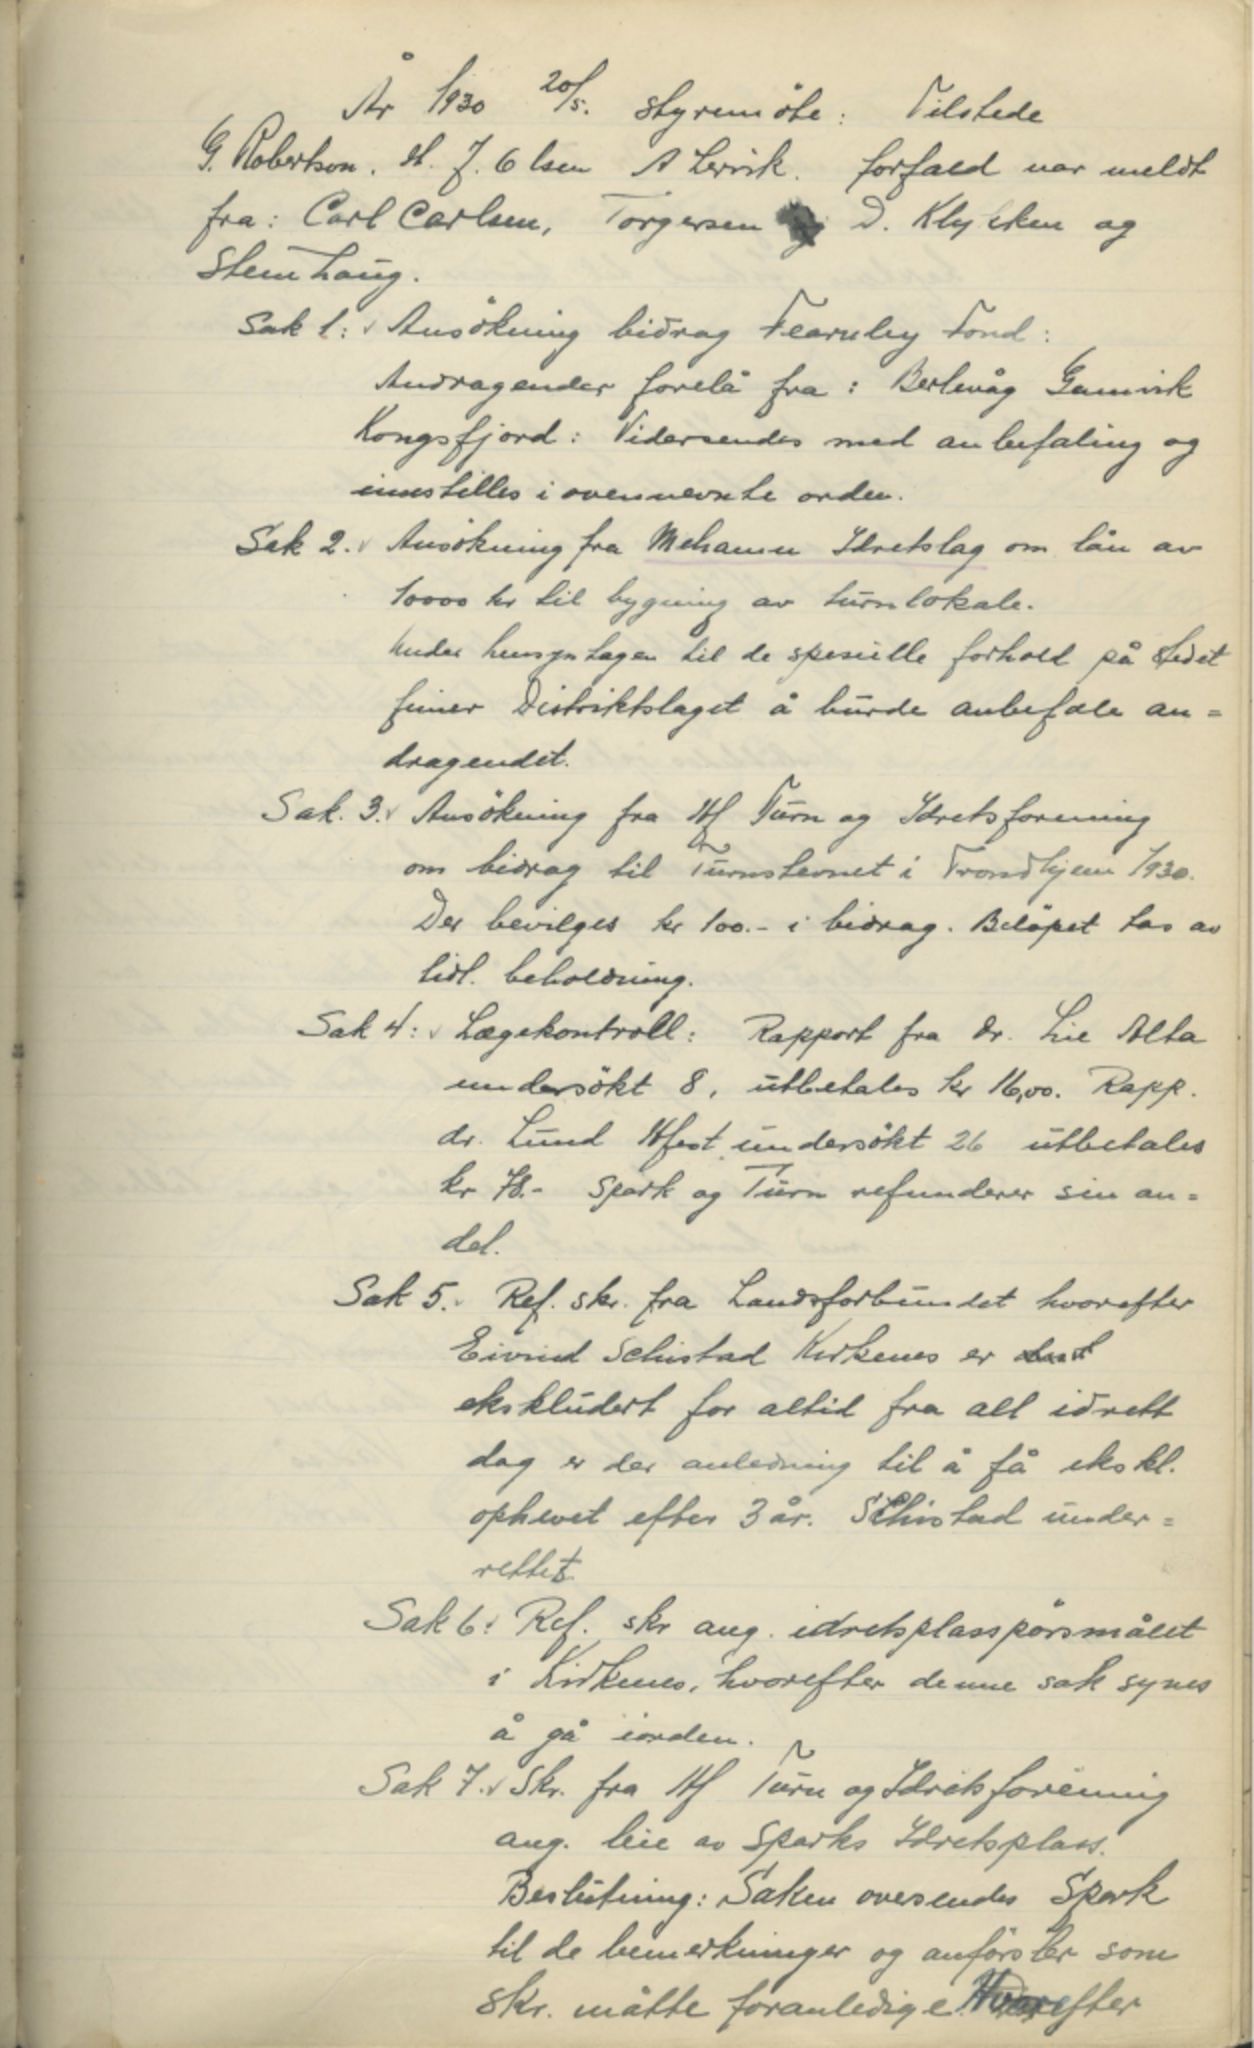 År 1930 20/5. styremöte: Tilstede
G. Robertson. H. J. Olsen A Lervik. forfald var meldt
fra: Carl Carlsen, Torgersen D. Klykken og
Stenhaug.
Sak 1: Ansökning bidrag Fearnley Fond:
Andragender forelå fra: Berlevåg Gamvik
Kongsfjord: Vidersendes med anbefaling og
innstilles i ovennevnte orden.
Sak 2. Ansökning fra Mehamn Idretslag om lån av
10000 kr til bygning av turnlokale.
Under hensyntagen til de spesielle forhold på stedet
finner Distriktslaget å burde anbefale an=
dragendet.
Sak. 3. Ansökning fra Hf Turn og Idretsforening
om bidrag til Turnstevnet i Trondhjem 1930.
Der bevilges kr 100.- i bidrag. Belöpet tas av
tidl. beholdning.
Sak 4: Lægekontroll: Rapport fra dr. Lie Alta
undersökt 8, utbetales kr 16,00. Rapp.
dr. Lund Hfest undersökt 26 utbetales
kr 78.- Spark og Turn refunderer sin an=
del.
Sak 5. Ref. skr. fra Landsforbundet hvorefter
Eivind Schistad Kirkenes er
ekskludert for altid fra all idrett
dog er der anledning til å få ekskl.
ophevet efter 3 år. Schistad under=
rettet.
Sak 6: Ref. skr ang. idretsplasspörsmålet
i Kirkenes, hvorefter denne sak synes
å gå iorden.
Sak 7. Skr. fra Hf Turn og Idretsforening
ang. leie av Sparks Idretsplass.
Beslutning: Saken oversendes Spark
til de bemerkninger og anförsler som
skr. måtte foranledige. Hvorefter